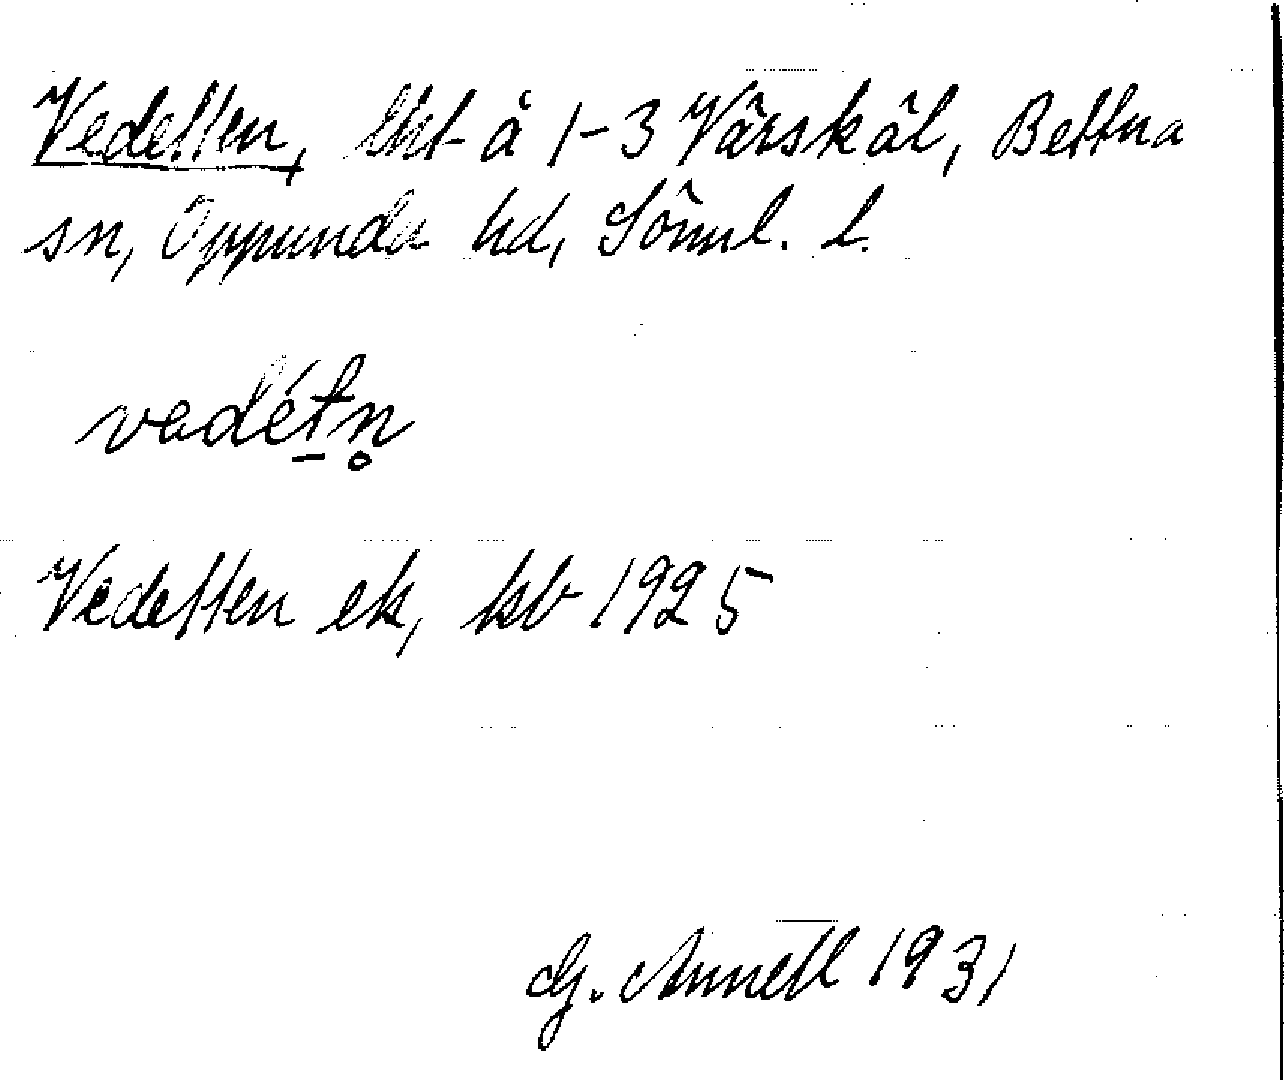 Vedetten, lht å 1-3 Vårskäl, Bettna
sn, Oppunda hd, Sörml. l.
vadétn̥
Vedetten ek, kb 1925
G. Annell 1931